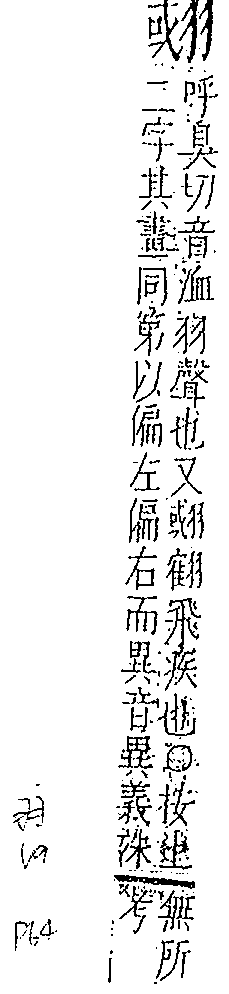 呼臭切音洫羽聲也又飛疾也○按此無所
二字其畫同第以偏左偏右而異音異義殊考
羽
19
P64